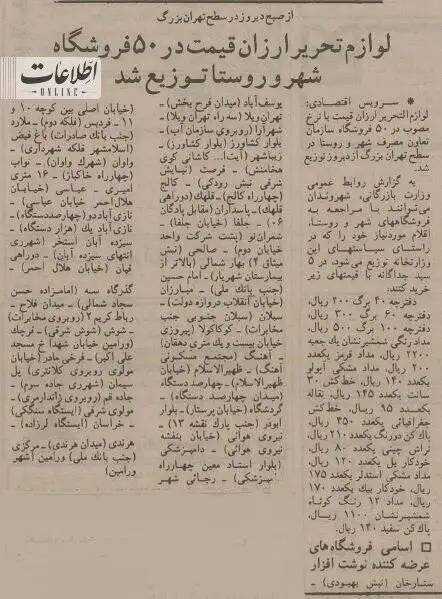 از صبح دیروز در سطح تهران بزرگ
لوازم تحریر ارزان قیمت در ۵۰ فروشگاه
شهر و روستا توزیع شد
اطلاعات
ONLINE
* سرویس اقتصادی:
لوازم التحریر ارزان قیمت با نرخ
مصوب در ۵۰ فروشگاه سازمان
تعاون مصرف شهر و روستا در
سطح تهران بزرگ از دیروز توزیع
شد.
به گزارش روابط عمومی
وزارت بازرگانی، شهروندان
می‌توانند با مراجعه به
فروشگاههای شهر و روستا،
اقلام موردنیاز خود را که در
راستای سیاستهای این
وزارتخانه توزیع می‌شود، در ۵
سبد جداگانه با قیمتهای زیر
خرید کنند:
دفترچه ۴۰ برگ ۲۰۰ ریال،
دفترچه ۶۰ برگ ۳۰۰ ریال،
دفترچه ۱۰۰ برگ ۵۰۰ ریال،
مداد رنگی شمشیرنشان یک جعبه
۲۲۰۰ ریال، مداد قرمز یکعدد
۲۵۰ ریال، مداد مشکی آیولو
یکعدد ۱۴۰ ریال، خط‌کش ۳۰
سانت یکعدد ۱۴۵ ریال، نقاله
یکعدد ۱۵ ریال، خط‌کش
جغرافیائی یکعدد ۳۵۰ ریال،
پاک کن دورنگ یکعدد ۲۱۰ ریال،
تراش چینی یکعدد ۸۰ ریال،
خودکار بل یکعدد ۱۲۰ ریال،
مداد مشکی استدلر یکعدد ۱۷۵
ریال، خودکار بیک یکعدد ۱۷۰
ریال، مداد ۱۲ رنگ کوتاه
شمشیرنشان ۱۱۰۰ ریال،
پاک کن سفید ۱۴۰ ریال.
□ اسامی فروشگاه‌های
عرضه کننده نوشت افزار
ستارخان (نبش بهبودی) ـ
یوسف‌آباد (میدان فرح بخش) ـ
تهران ویلا (سه راه تهران ویلا) ـ
شهرآرا (روبروی سازمان آب) ـ
بلوار کشاورز (بلوار کشاورز) ـ
زیباشهر (آیت‌ا... کاشانی کوی
هخامنش) ـ فرصت (نبایش
شرقی نبش رودکی) ـ کالج
(چهارراه کالج) ـ قلهک (دوراهی
قلهک) ـ پاسداران (مقابل پادگان
۰۶) ـ جلفا (خیابان جلفا) ـ
شمران‌نو (پشت شرکت واحد
خیابان دوم) ـ صالحی (نبش
میثاق ۴) بهار شمالی (بالاتر از
بیمارستان شهریار) ـ امام حسین
(جنب بانک ملی) ـ مبارزان
(خیابان انقلاب دروازه دولت) ـ
سبلان (سبلان جنوبی جنب
مخابرات) ـ کوکاکولا (پیروزی
خیابان بیست و یک متری دهقان)
ـ آهنگ (مجتمع مسکونی
آهنگ) ـ ظهیرالاسلام (خیابان
ظهیرالاسلام) ـ چهارصد دستگاه
(میدان چهارصد دستگاه) ـ
گردشگاه (خیابان پرستار) ـ بلوار
ابوذر (جنب پارک نقشه ۱۳) ـ
نیروی هوائی (خیابان بنفشه
نیروی هوائی) ـ دامپزشکی
(بلوار استاد معین چهارراه
دامپزشکی) ـ رجائی شهر
(خیابان اصلی بین کوچه ۱۰ و
۱۱ ـ فردیس (فلکه دوم) ـ ملارد
(جنب بانک صادرات) باغ فیض
(اسلامشهر فلکه شهرداری) ـ
واوان (شهرک واوان) ـ نواب
(چهارراه خاکباز) ـ ۱۶ متری
امیری ـ عباسی (خیابان
هلال‌احمر خیابان عباسی) ـ
نازی‌آباد دو (چهارصددستگاه) ـ
نازی‌آباد یک (هزار دستگاه) ـ
سیزده آبان استخر (شهرری
انتهای سیزده آبان) ـ دوراهی
قپان (خیابان هلال احمر) ـ
گذرگاه سه (امامزاده حسن
سجاد شمالی) ـ میدان فلاح ـ
رباط کریم ۲ (روبروی مخابرات)
ـ شوش (شوش شرقی) ـ قرچک
(ورامین خیابان شهدا خ مسجد
علی اکبر) ـ فرخی مادر (خیابان
مولوی روبروی کلانتری) پل
سیمان (شهرری جاده سوم) ـ
جاده قم (روبروی ژاندارمری) ـ
مولوی شرقی (ایستگاه سنگکی)
ـ خراسان (ایستگاه لرزاده) ـ
هرندی (میدان هرندی) ـ مرکزی
(جنب بانک ملی) ورامین (شهر
ورامین)